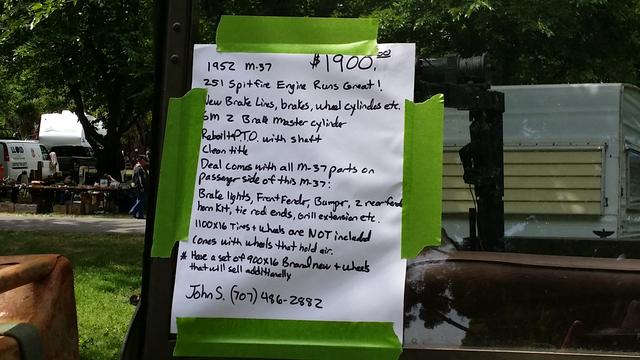 $1900.00
1952 M-37
251 Spitfire Engine Runs Great!
New Brake Lines, brakes, wheel cylinders etc.
GM 2 Brake master cylinder
Rebuilt PTO. with shaft
Clean title
Deal comes with all M-37 parts on
passenger side of this M-37:
Brake lights, Front Fender, Bumper, 2 rear fend
horn Kit, tie rod ends, Grill extension etc.
1100X16 Tires + wheels are NOT included
Comes with wheels that hold air.
* Have a set of 900X16 Brand new + wheels
that will sell additionally
John S. (707) 486-2882